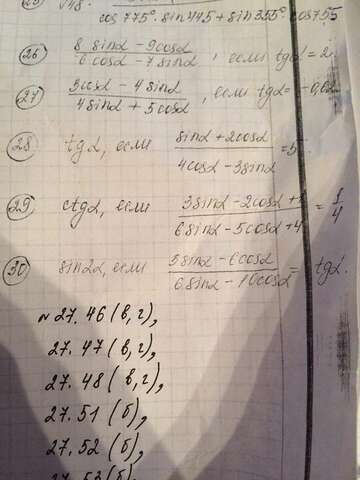 cos 775° · sin 445 + sin 355° · cos 755
26 8 sinα - 9cosα / 6 cosα - 7 sinα, если tgα = 2
27 3cosα - 4 sinα / 4 sinα + 5 cosα, если tgα =
28 tgα, если sinα + 2cosα / 4cosα - 3sinα = 5
29 ctgα, если 3sinα - 2cosα + / 6 sinα - 5cosα + 4 = 1/4
30 sin2α, если 5sinα - 6cosα / 6 sinα - 10cosα = tgα.
№ 27.46 (в,г),
27.47 (в,г),
27.48 (в,г),
27.51 (б),
27.52 (б),
27.53 (б),